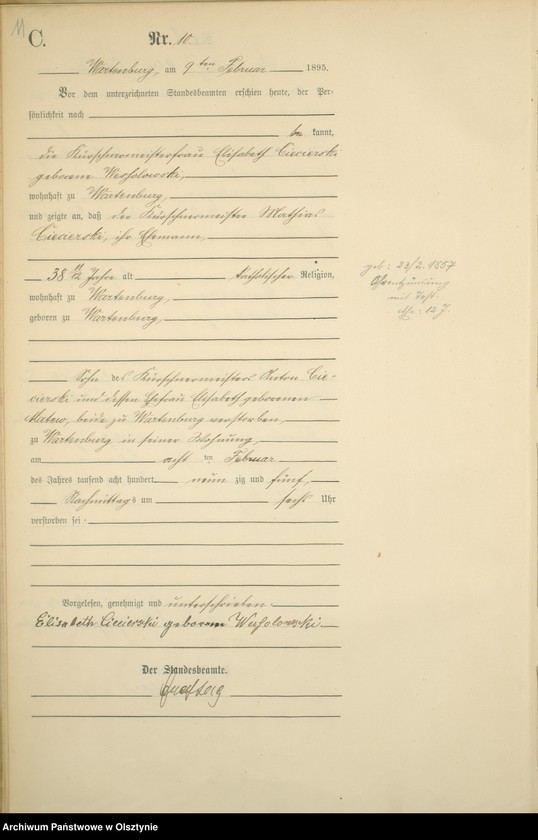 11
C.
Nr. 10.
Wartenburg, am 9ten Februar 1895.
Vor dem unterzeichneten Standesbeamten erschien heute, der Per-
sönlichkeit nach
be kannt,
die Kürschnermeisterfrau Elisabeth Ciecierski
geborene Wessolowski,
wohnhaft zu Wartenburg,
und zeigte an, daß der Kürschnermeister Mathias
Ciecierski, ihr Ehemann,
38 11/12 Jahre alt katholischer Religion,
wohnhaft zu Wartenburg,
geboren zu Wartenburg,
Sohn des Kürschnermeisters Anton Cie-
cierski und dessen Ehefrau Elisabeth geborenen
beide zu Wartenburg verstorben,
zu Wartenburg in seiner Wohnung,
am acht ten Februar
des Jahres tausend acht hundert neun zig und fünf,
Nachmittags um sechs Uhr
verstorben sei.
Vorgelesen, genehmigt und unterschrieben
Elisabeth Ciecierski geborene Wessolowski
Der Standesbeamte.
geb: 22/2. 1857
mit
12 J.
Archiwum Państwowe w Olsztynie